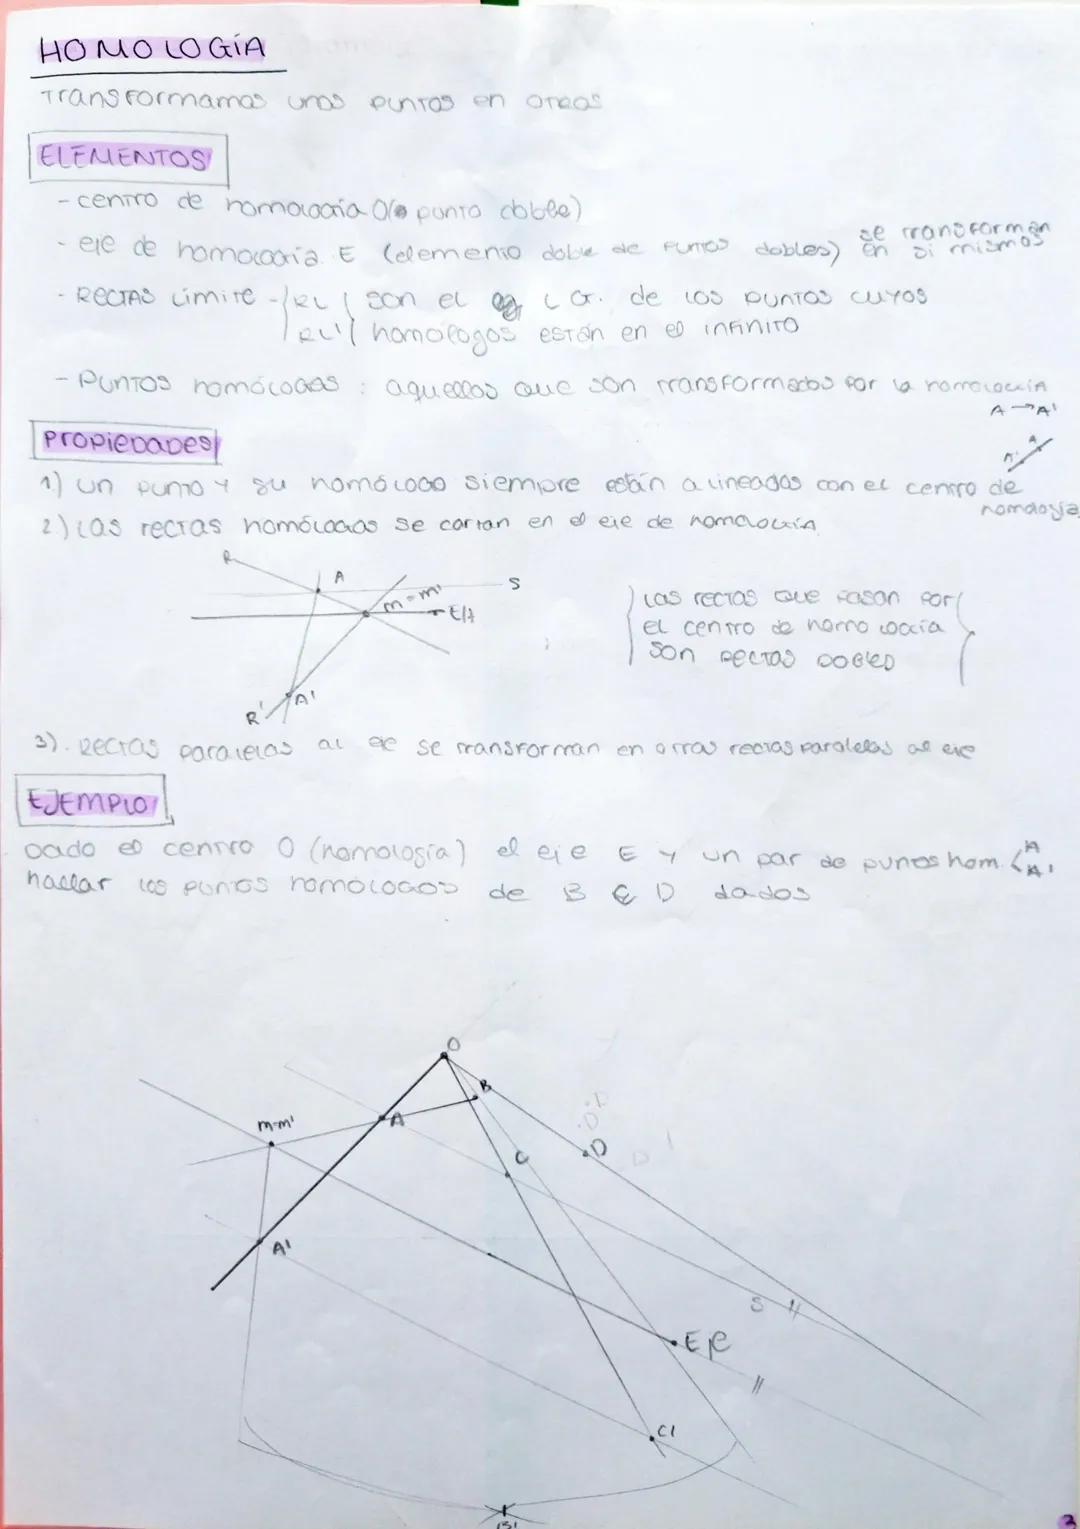 HOMOLOGÍA
Transformamos unos puntos en otros
ELEMENTOS
- centro de homología O (punto doble)
- eje de homología E (elemento doble de puntos dobles) se transforman en si mismos
- RECTAS Límite - RL son el L Gr. de los puntos cuyos
RL' homólogos están en el infinito
- Puntos homólogos : aquellos que son transformados por la homología
A → A'
Propiedades
A' A
1) un punto y su homólogo siempre están alineados con el centro de homología
2) Las rectas homólogas se cortan en el eje de homología
R
A
S
m=m'
E/A
R'
A'
Las rectas que pasan por
el centro de homología
son rectas dobles
3). Rectas paralelas al eje se transforman en otras rectas paralelas al eje
EJEMPLO
Dado el centro O (homología) el eje E y un par de puntos hom. A A'
hallar los puntos homólogos de B C D dados
O
B
m=m'
A
D
C
A'
S //
Eje
//
C'
B'
3